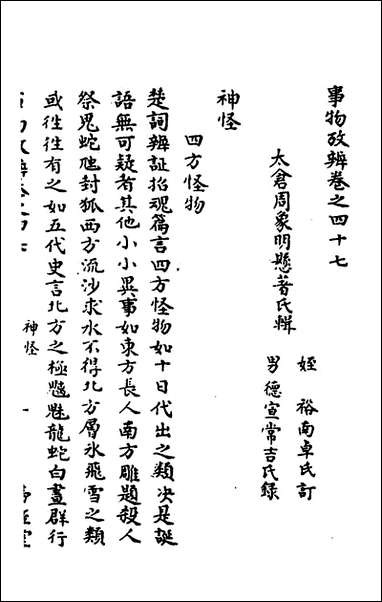 事物攷辨卷之四十七
太倉周象明懸著氏輯
姪 裕南卓氏訂
男 德宣常吉氏錄
神怪
四方怪物
楚詞辨証招魂篇言四方怪物如十日代出之類決是誕
語無可疑者其他小小異事如東方長人南方雕題殺人
祭鬼蛇虺封狐西方流沙求水不得北方層冰飛雪之類
或徃徃有之如五代史言北方之極魑魅龍蛇白晝群行
神怪
一